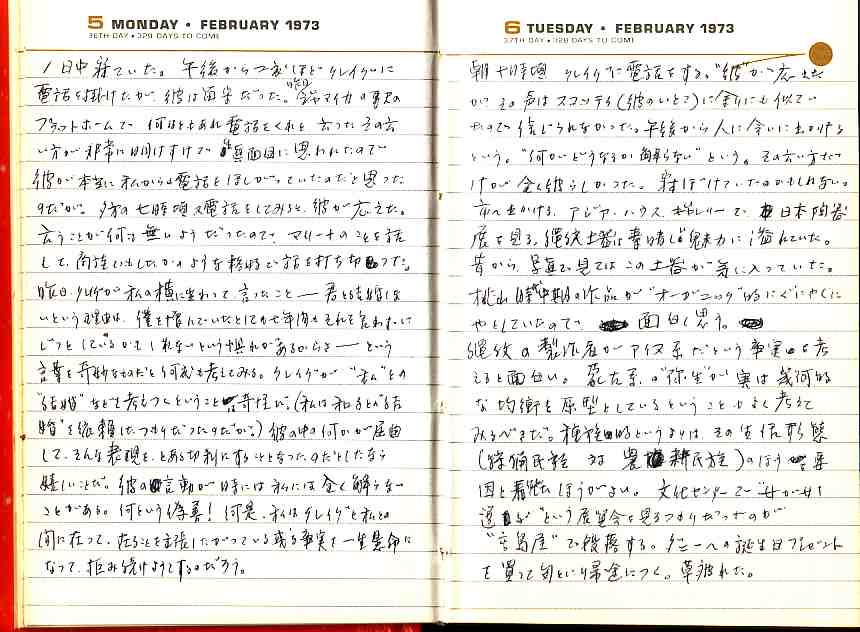 5 MONDAY • FEBRUARY 1973
36TH DAY • 329 DAYS TO COME
1日中寝ていた。午後から クレイグに
電話を掛けたが、彼は留守だった。昨日
プラットホームで 何はともあれ電話をくれと云った その云
い方が非常に明けすけで 真面目に思われたので
彼が本当に私からの電話をほしがっていたのだと思った
のだが。夕方の七時頃又電話をしてみると、彼が応えた。
云うことが何も無いようだったので、マリーナのことを話
して、 ような格好で話を打ち切った。
昨日、クレイグが私の横に坐わって言ったこと — 君と結婚しな
いという理由は、僕を憎んでいたとしても七年間もそれを言わずに
じっとしているかもしれないという惧れがあるからさ — という
言葉を奇妙なものだと何度も考えてみる。クレイグが "私" との
"結婚" などを考えつくということ 奇怪だ。(私は 結
婚" を依頼したつもりだったのだが。) 彼の中の何かが屈曲
して、そんな表現を、とある切利にすることとなったのだとしたなら
嬉しいことだ。彼の言動が時には私には全く解らない
ことがある。何という偽善! 何是、私はクレイグと私との
間に在って、在ることを主張したがっている或る事実を一生懸命に
なって、拒み続けようとするのだろう。
6 TUESDAY • FEBRUARY 1973
37TH DAY • 328 DAYS TO COME
朝十時頃 クレイグに電話をする。"彼" が応えた
が、その声はスコッティ(彼のいとこ)に余りにも似てい
たので信じられなかった。午後から人に会いに出かける
という。"何がどうなるか解らない" という。その云い方だ
けが全く彼らしかった。寝ぼけていたのかもしれない。
市へ出かける。アジア・ハウス・ギャラリーで、日本陶器
展を見る。縄紋土器は素晴しい魅力に溢れていた。
昔から、写真で見てはこの土器が気に入っていた。
桃山時中期の作品が "オーガニック" 的にぐにゃぐに
ゃとしていたので 面白く思う。
縄紋の製作者がアイヌ系だという事実も考
えると面白い。蒙古系の "弥生" が実は幾何的
な均衝を原型としているということもよく考えて
みるべきだ。種族的というよりは、その生活形態
(狩猟民族 対 農耕民族)のほうに要
因と着せたほうがよい。文化センターで
" という展覧会を見るつもりだったのが
"高島屋" で 。ダニーへの誕生日プレゼント
を買って 帰途につく。草疲れた。